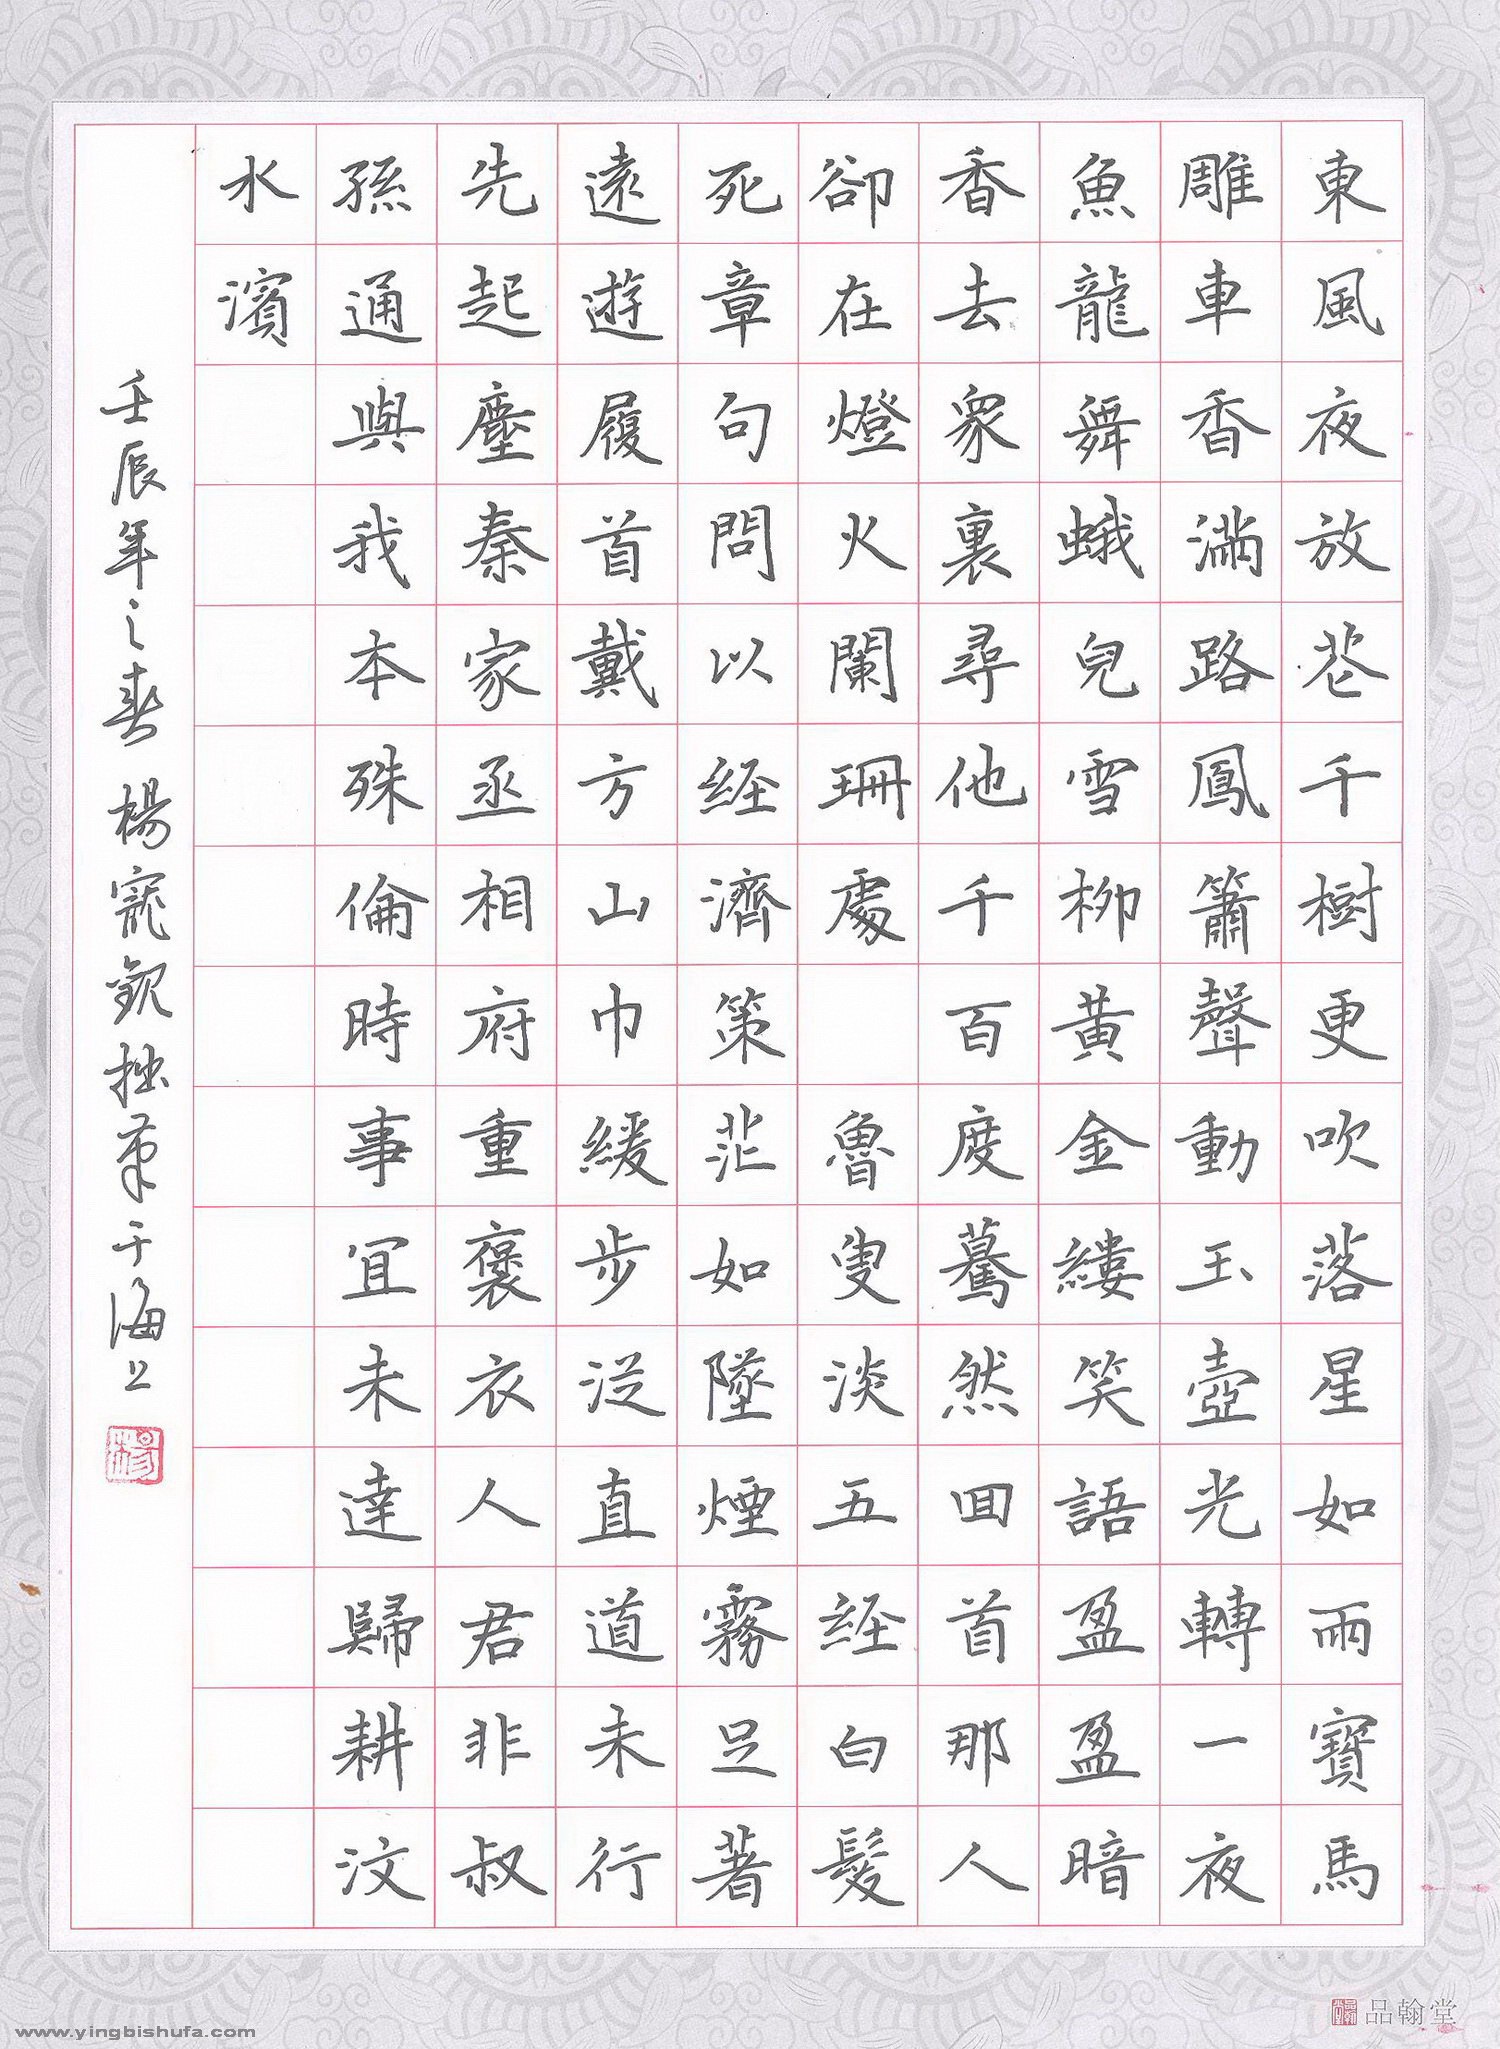 東風夜放花千樹更吹落星如雨寶馬
雕車香滿路鳳簫聲動玉壺光轉一夜
魚龍舞蛾兒雪柳黃金縷笑語盈盈暗
香去衆裏尋他千百度驀然回首那人
卻在燈火闌珊處 魯叟淡五經白髮
死章句問以經濟策茫如墜煙霧足著
遠遊履首戴方山巾緩步從直道未行
先起塵秦家丞相府重褒衣人君非叔
孫通與我本殊倫時事宜未達歸耕汶
水濱
壬辰年之春 楊寵拙筆于海上
楊
品翰堂
www.yingbishufa.com